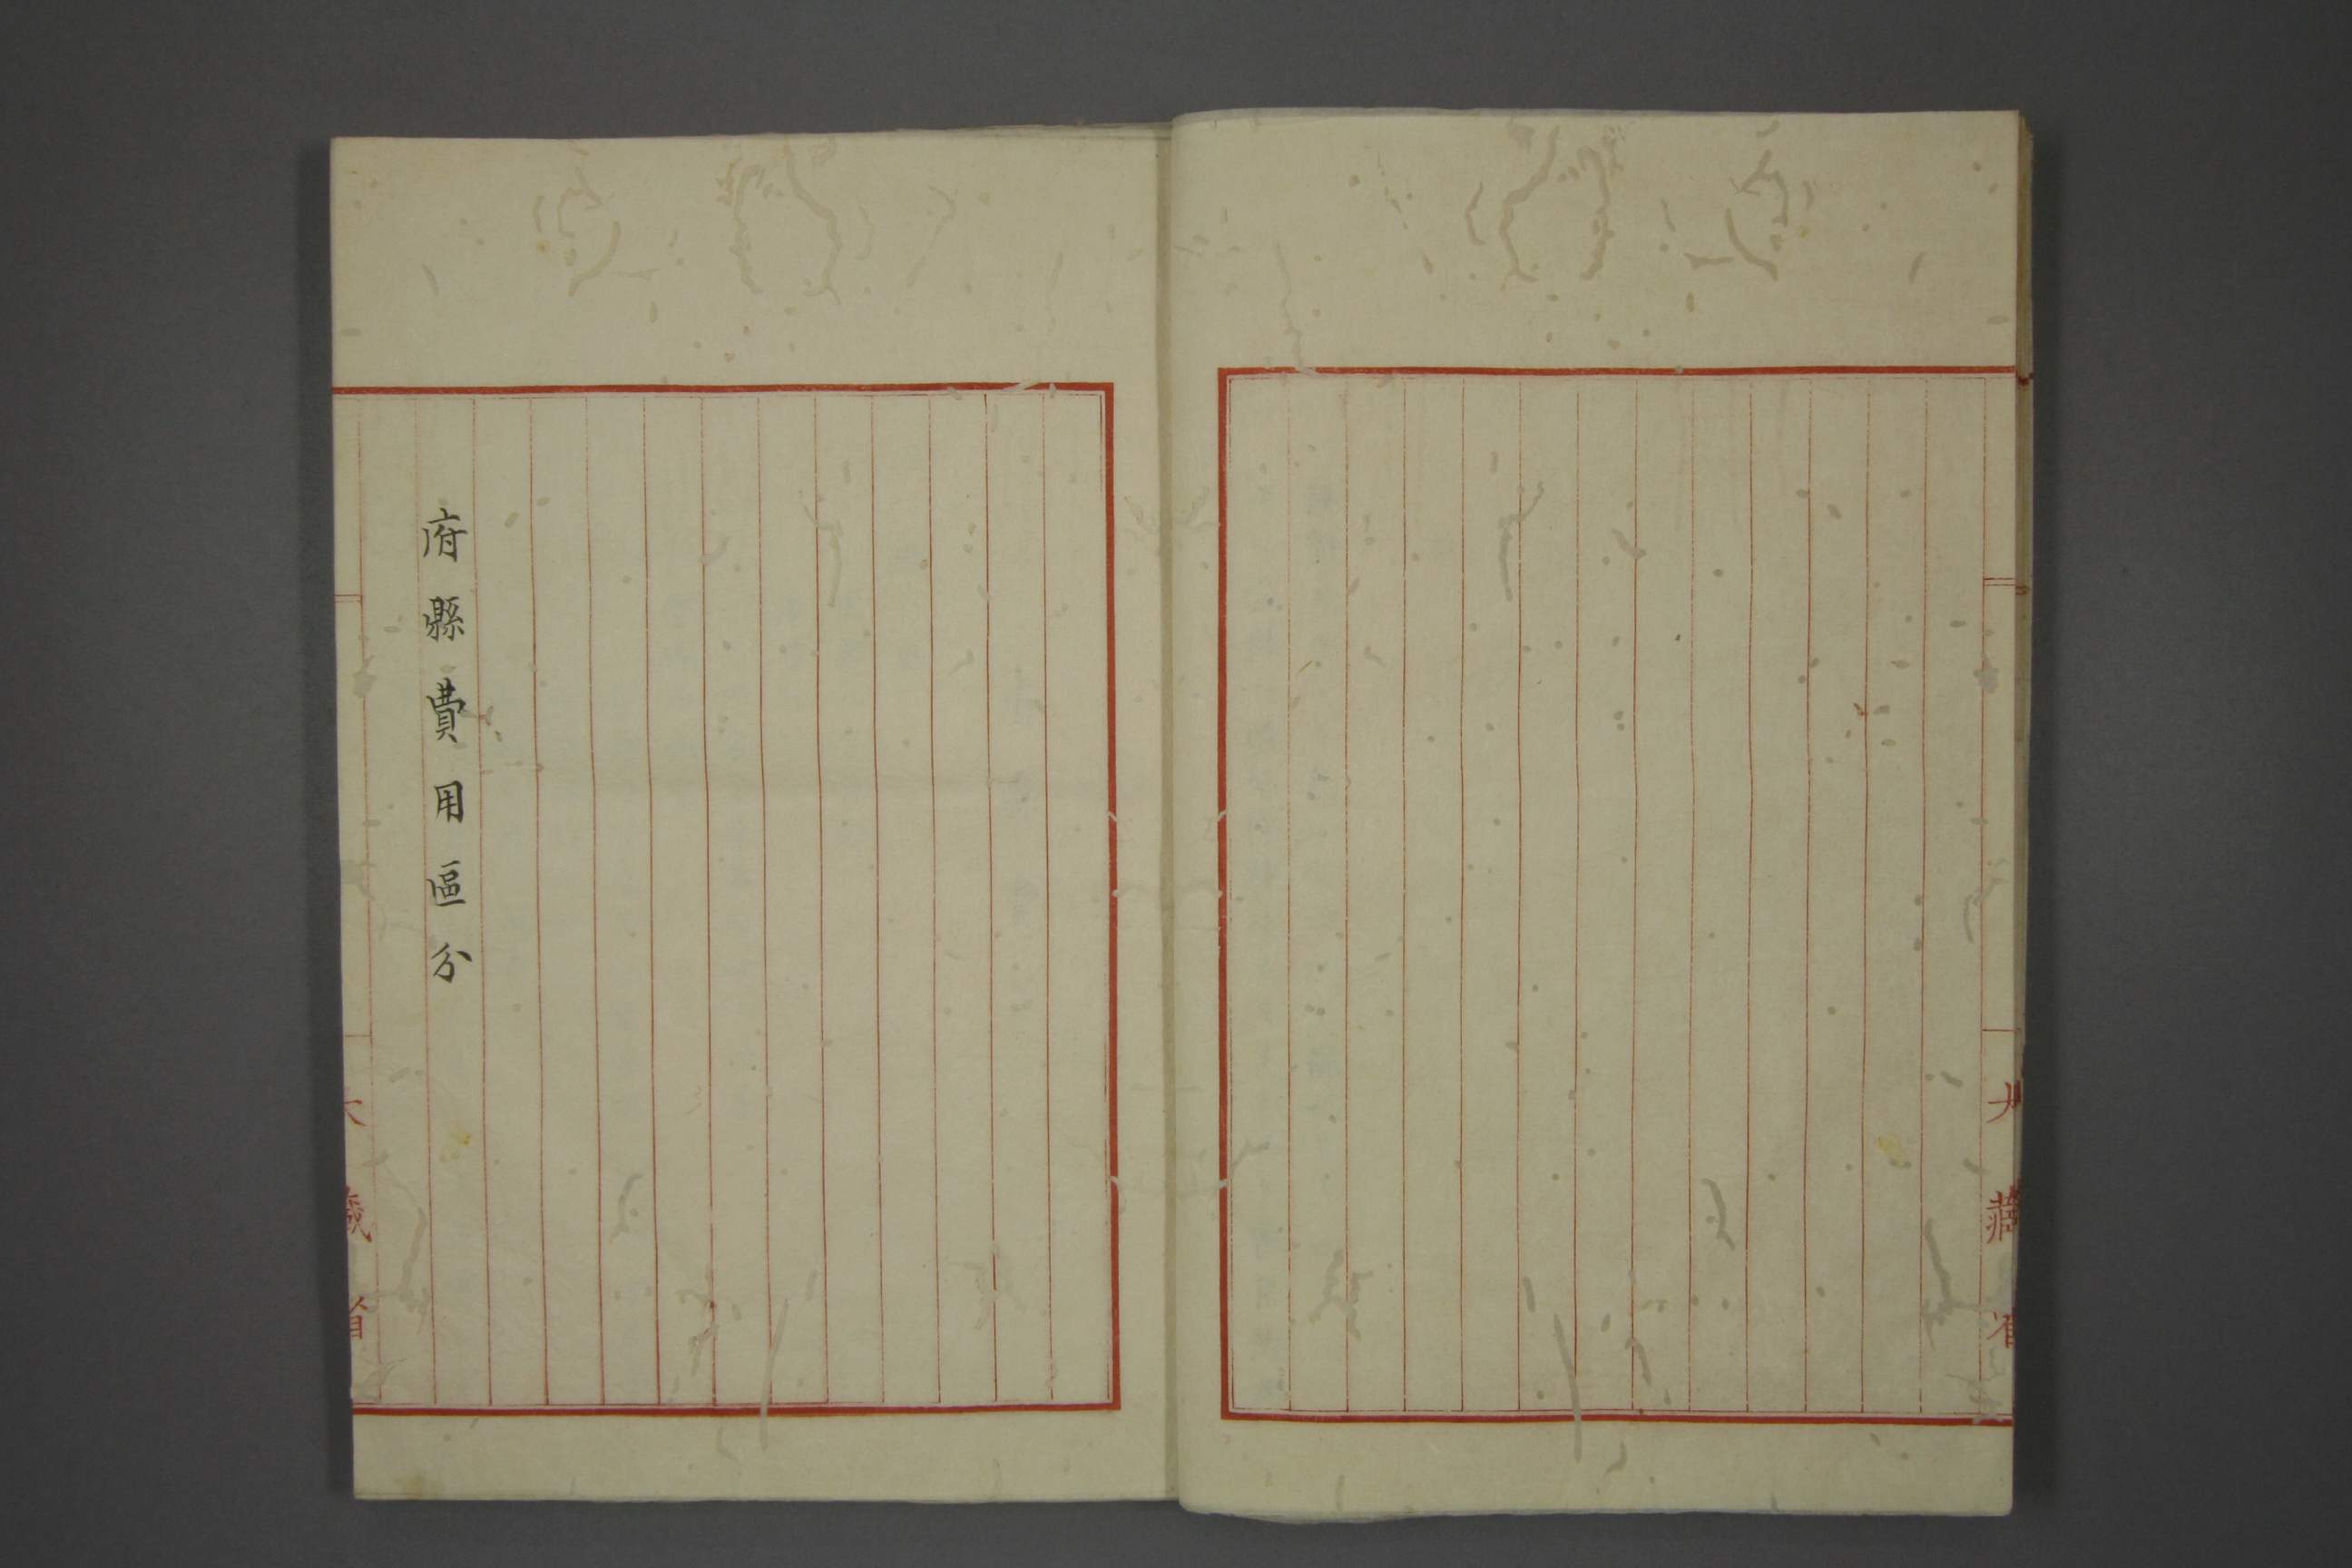 大藏省
府縣費用區分
大藏省